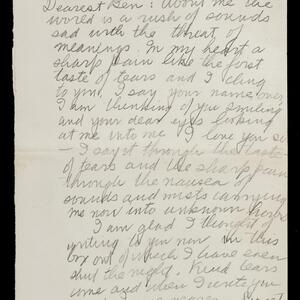 Dearest Ben: About me the
world is a rush of sounds
sad with the threat of
meanings. In my heart a
sharp pain like the first
taste of tears and I cling
to you. I say your name over
I am thinking of you smiling
and your dear eyes looking
at me into me I love you so
— I say it through the taste
of tears and the sharp pain
through the nausea of
sounds and mists carrying
me now into unknown
I am glad I thought of
writing to you now. In this
box out of which I have even
shut the night. Kind tears
come and when I write you